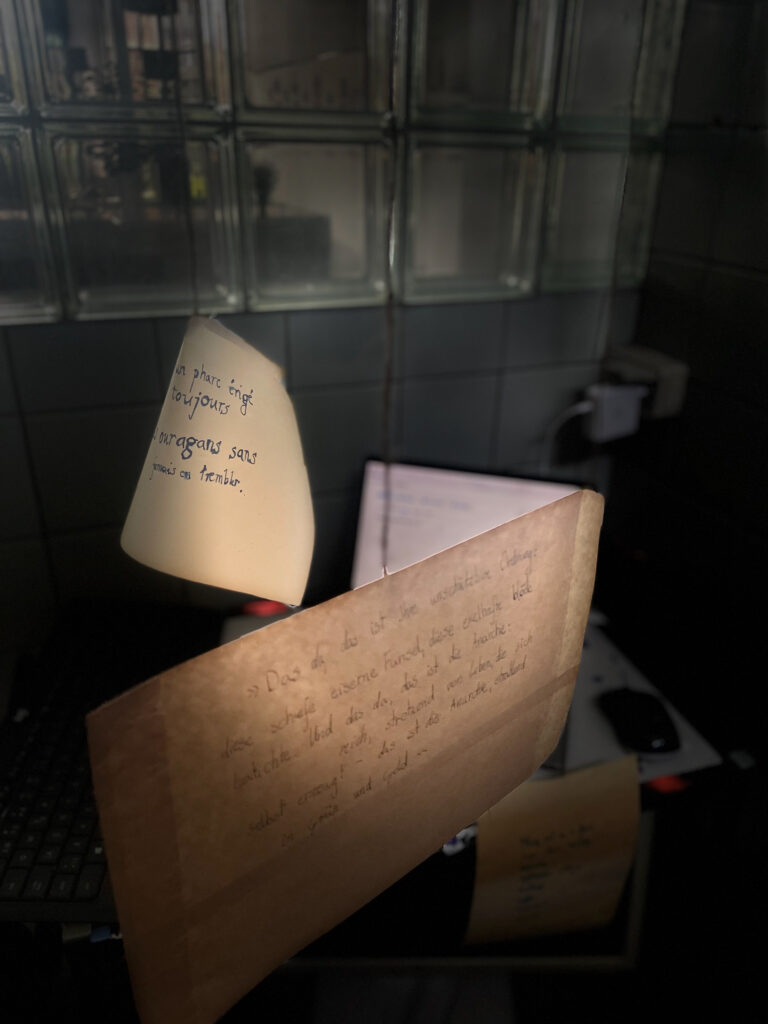 un phare érigé
toujours
ouragans sans
jamais en trembler.
» Das da, das ist Ihre unschätzbare Ordnung:
diese schiefe eiserne Funsel, diese ekelhafte blöde
Und das da, das ist die Anarchie:
reich, strotzend von Leben, die sich
selbst erzeugt – das ist die Anarchie, strahlend
in Grün und Gold «